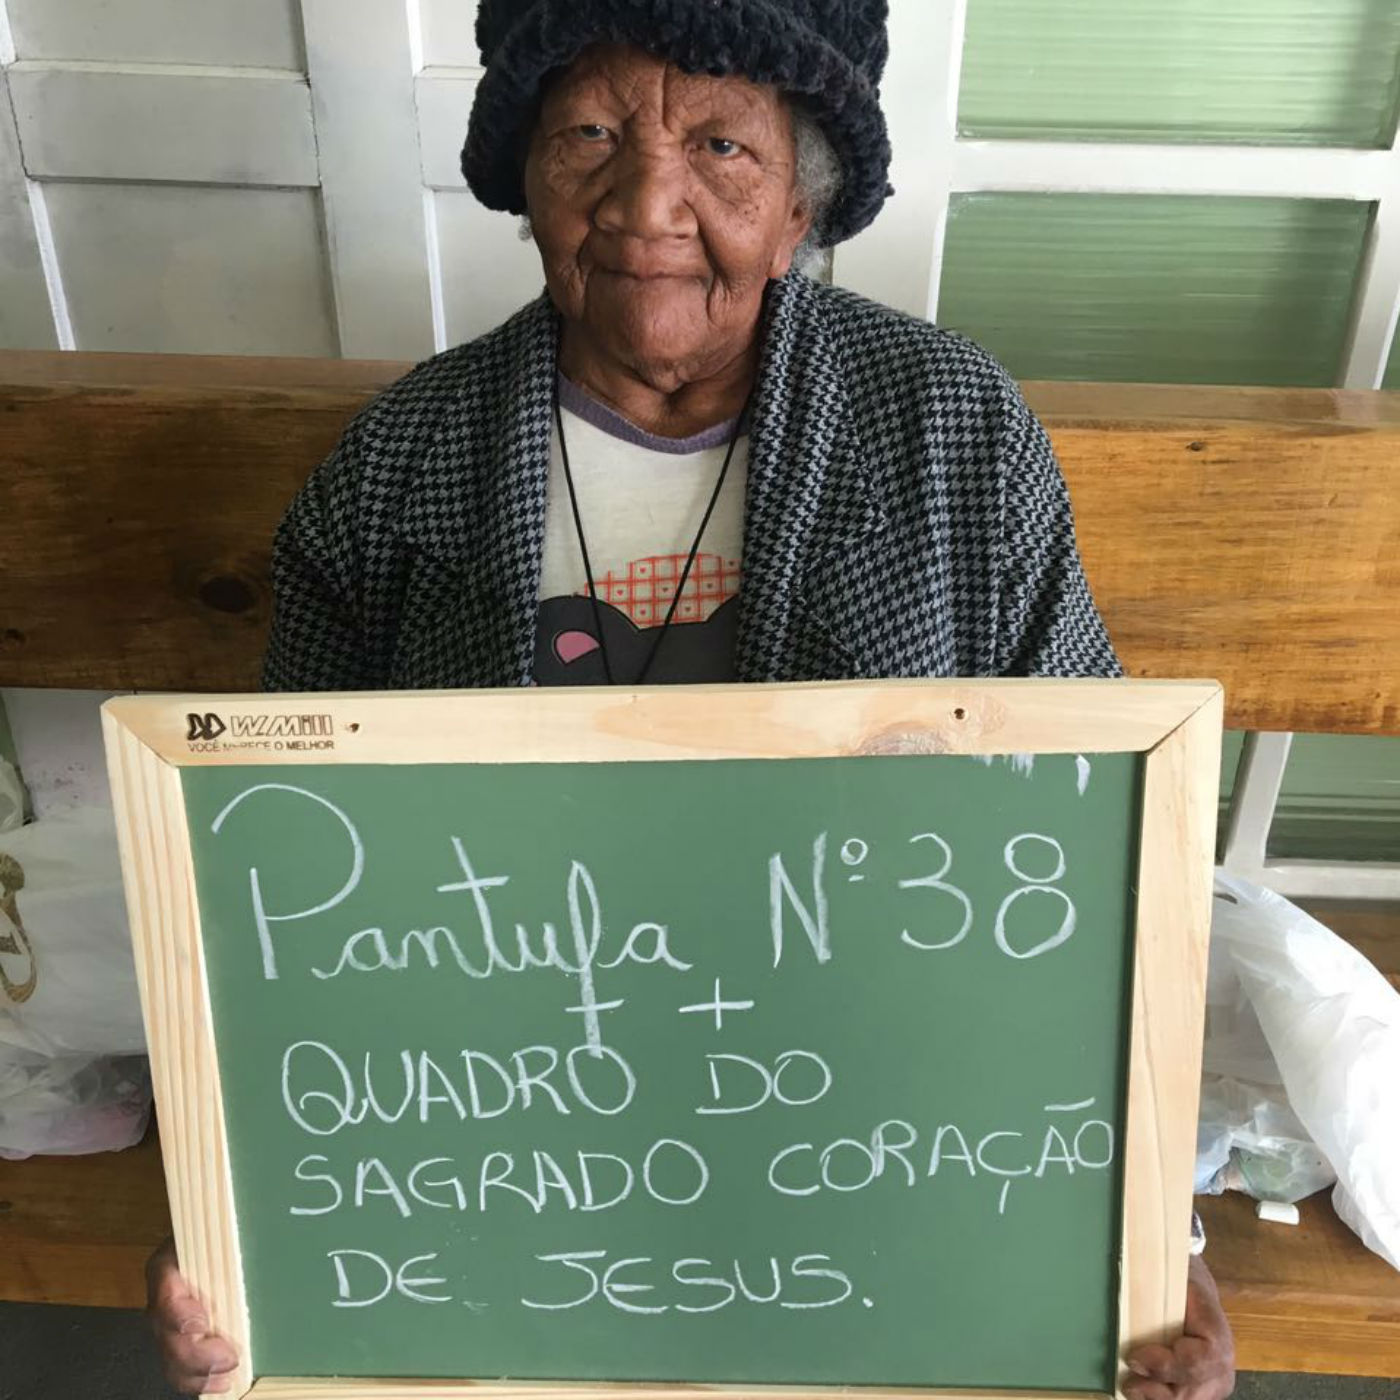 W.Mill
VOCÊ MERECE O MELHOR
Pantufa Nº 38
+
QUADRO DO
SAGRADO CORAÇÃO
DE JESUS.